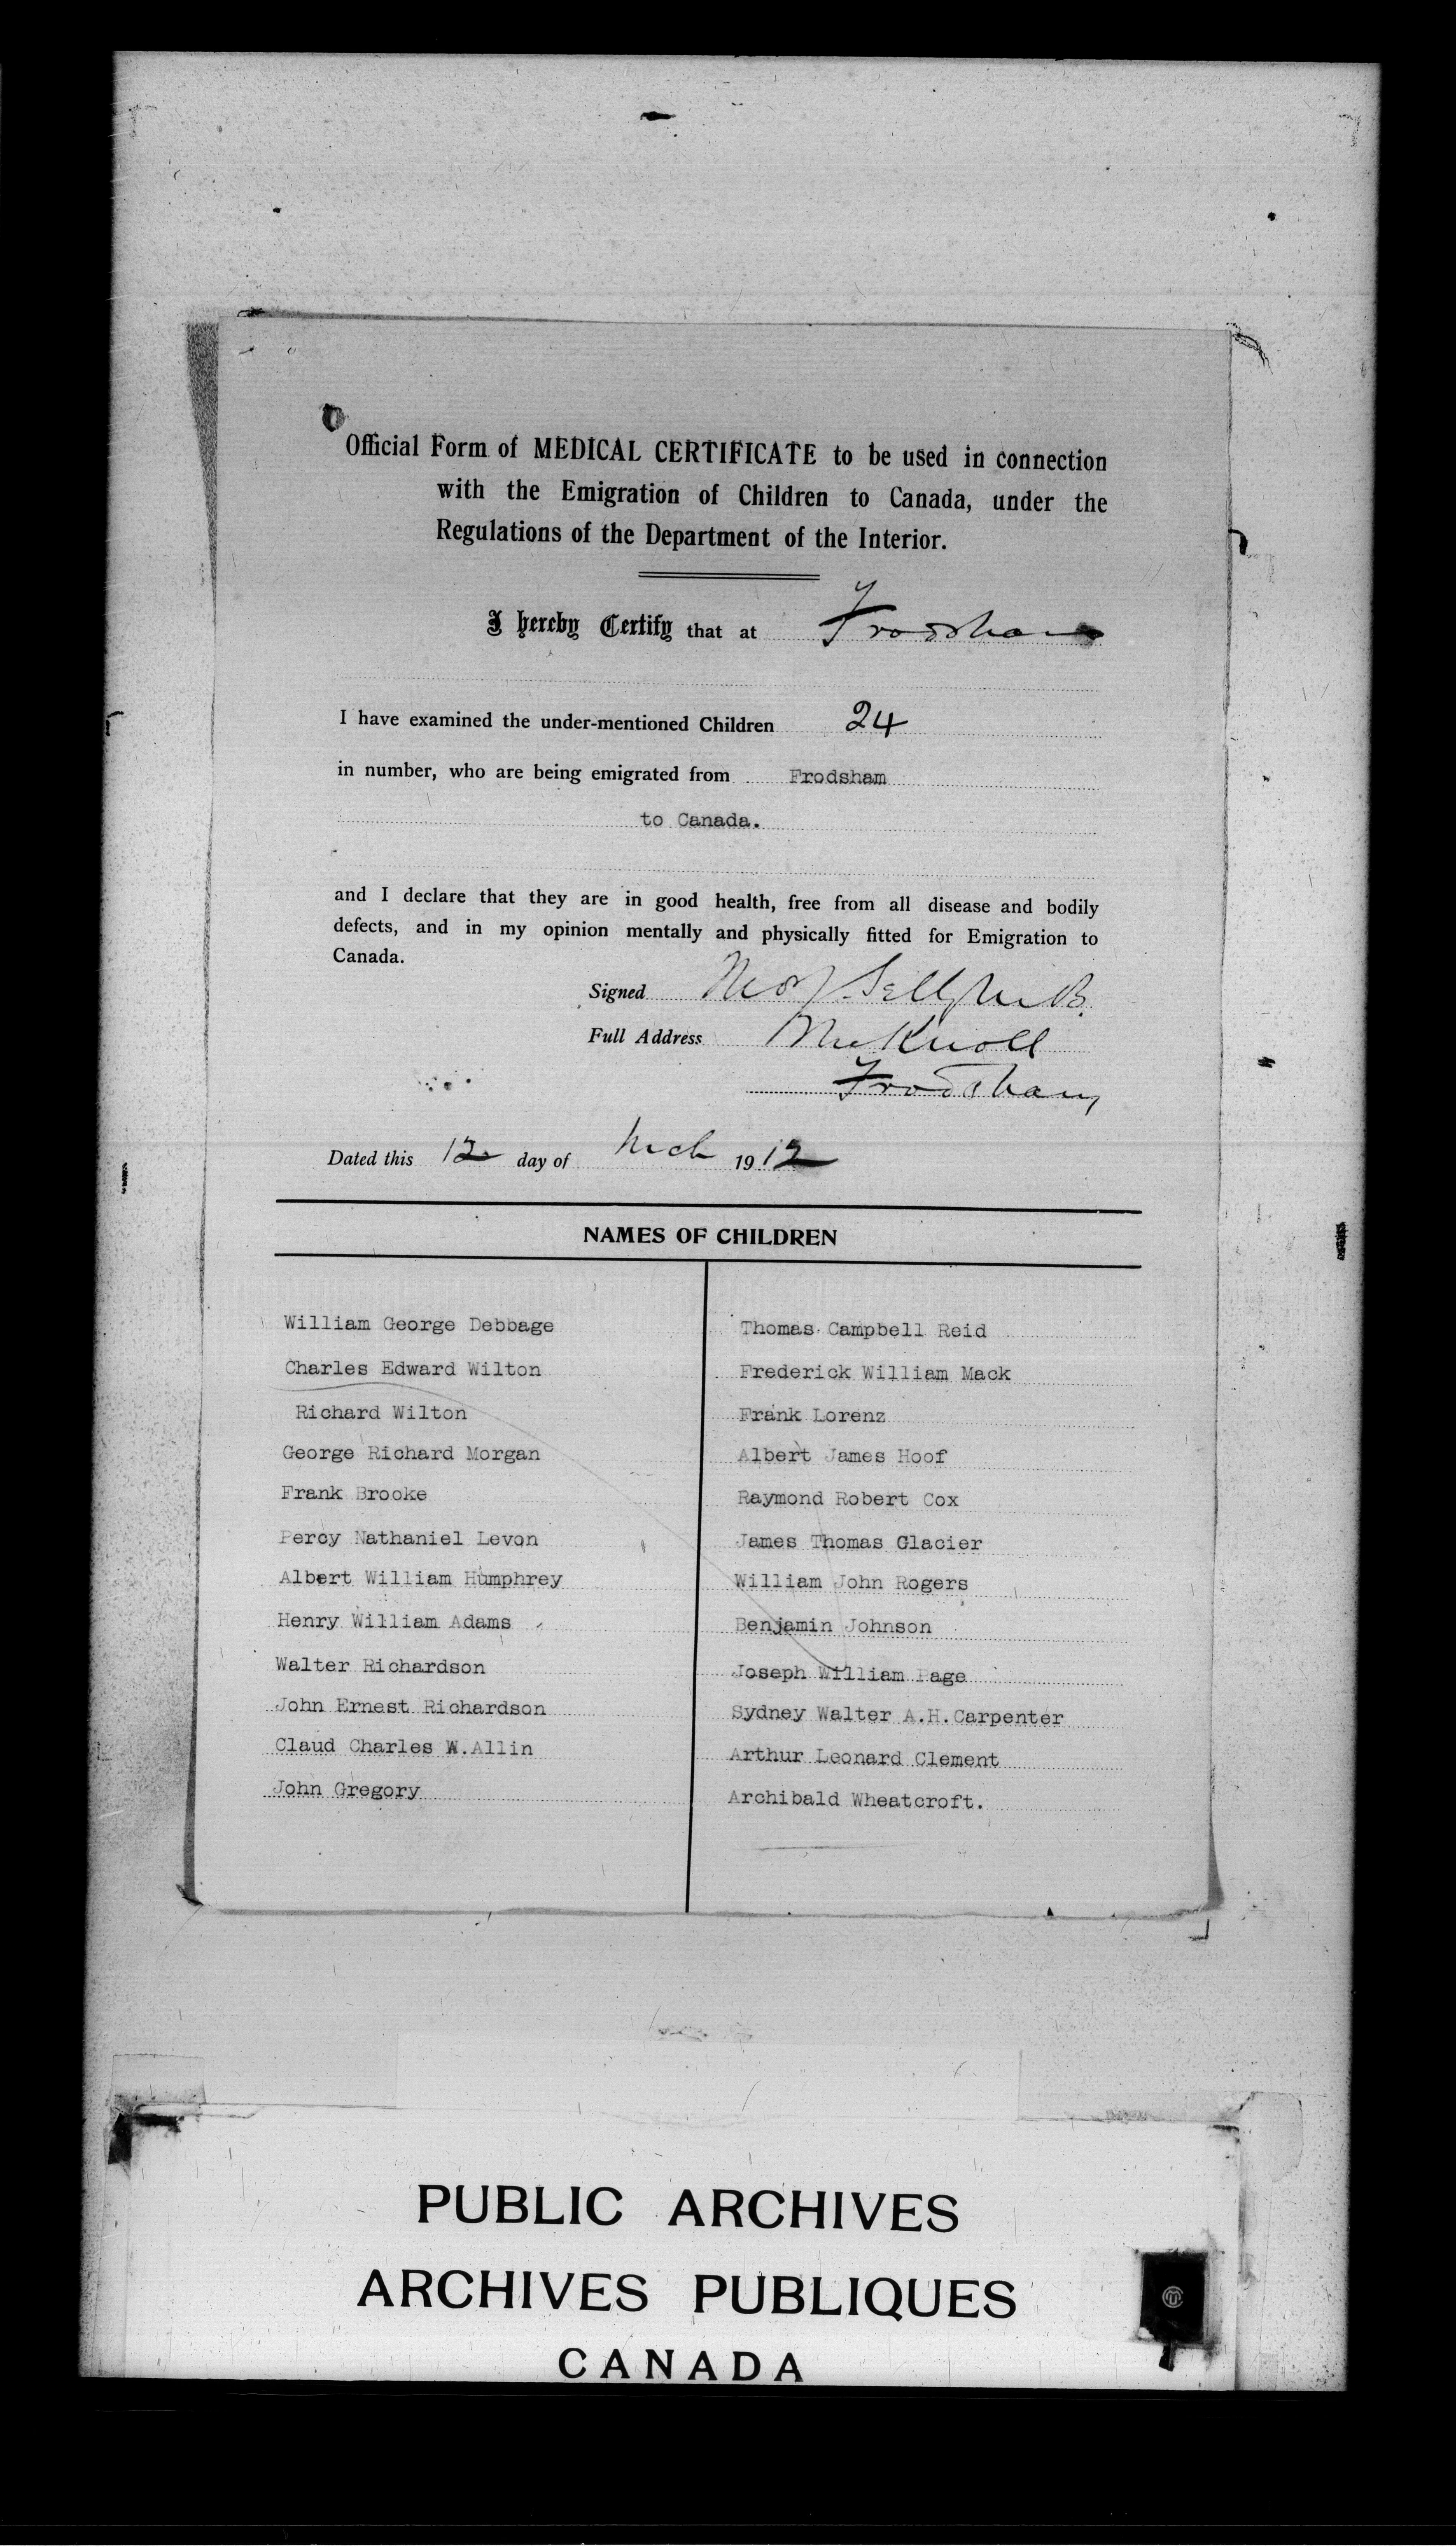 Official Form of MEDICAL CERTIFICATE to be used in connection
with the Emigration of Children to Canada, under the
Regulations of the Department of the Interior.
I hereby Certify that at Frodsham
I have examined the under-mentioned Children 24
in number, who are being emigrated from Frodsham
to Canada.
and I declare that they are in good health, free from all disease and bodily
defects, and in my opinion mentally and physically fitted for Emigration to
Canada.
Signed
Full Address The Knoll
Frodsham
Dated this 12 day of Mch 1912
NAMES OF CHILDREN
William George Debbage
Charles Edward Wilton
Richard Wilton
George Richard Morgan
Frank Brooke
Percy Nathaniel Levon
Albert William Humphrey
Henry William Adams
Walter Richardson
John Ernest Richardson
Claud Charles W.Allin
John Gregory
Thomas Campbell Reid
Frederick William Mack
Frank Lorenz
Albert James Hoof
Raymond Robert Cox
James Thomas Glacier
William John Rogers
Benjamin Johnson
Joseph William Page
Sydney Walter A.H.Carpenter
Arthur Leonard Clement
Archibald Wheatcroft.
PUBLIC ARCHIVES
ARCHIVES PUBLIQUES
CANADA